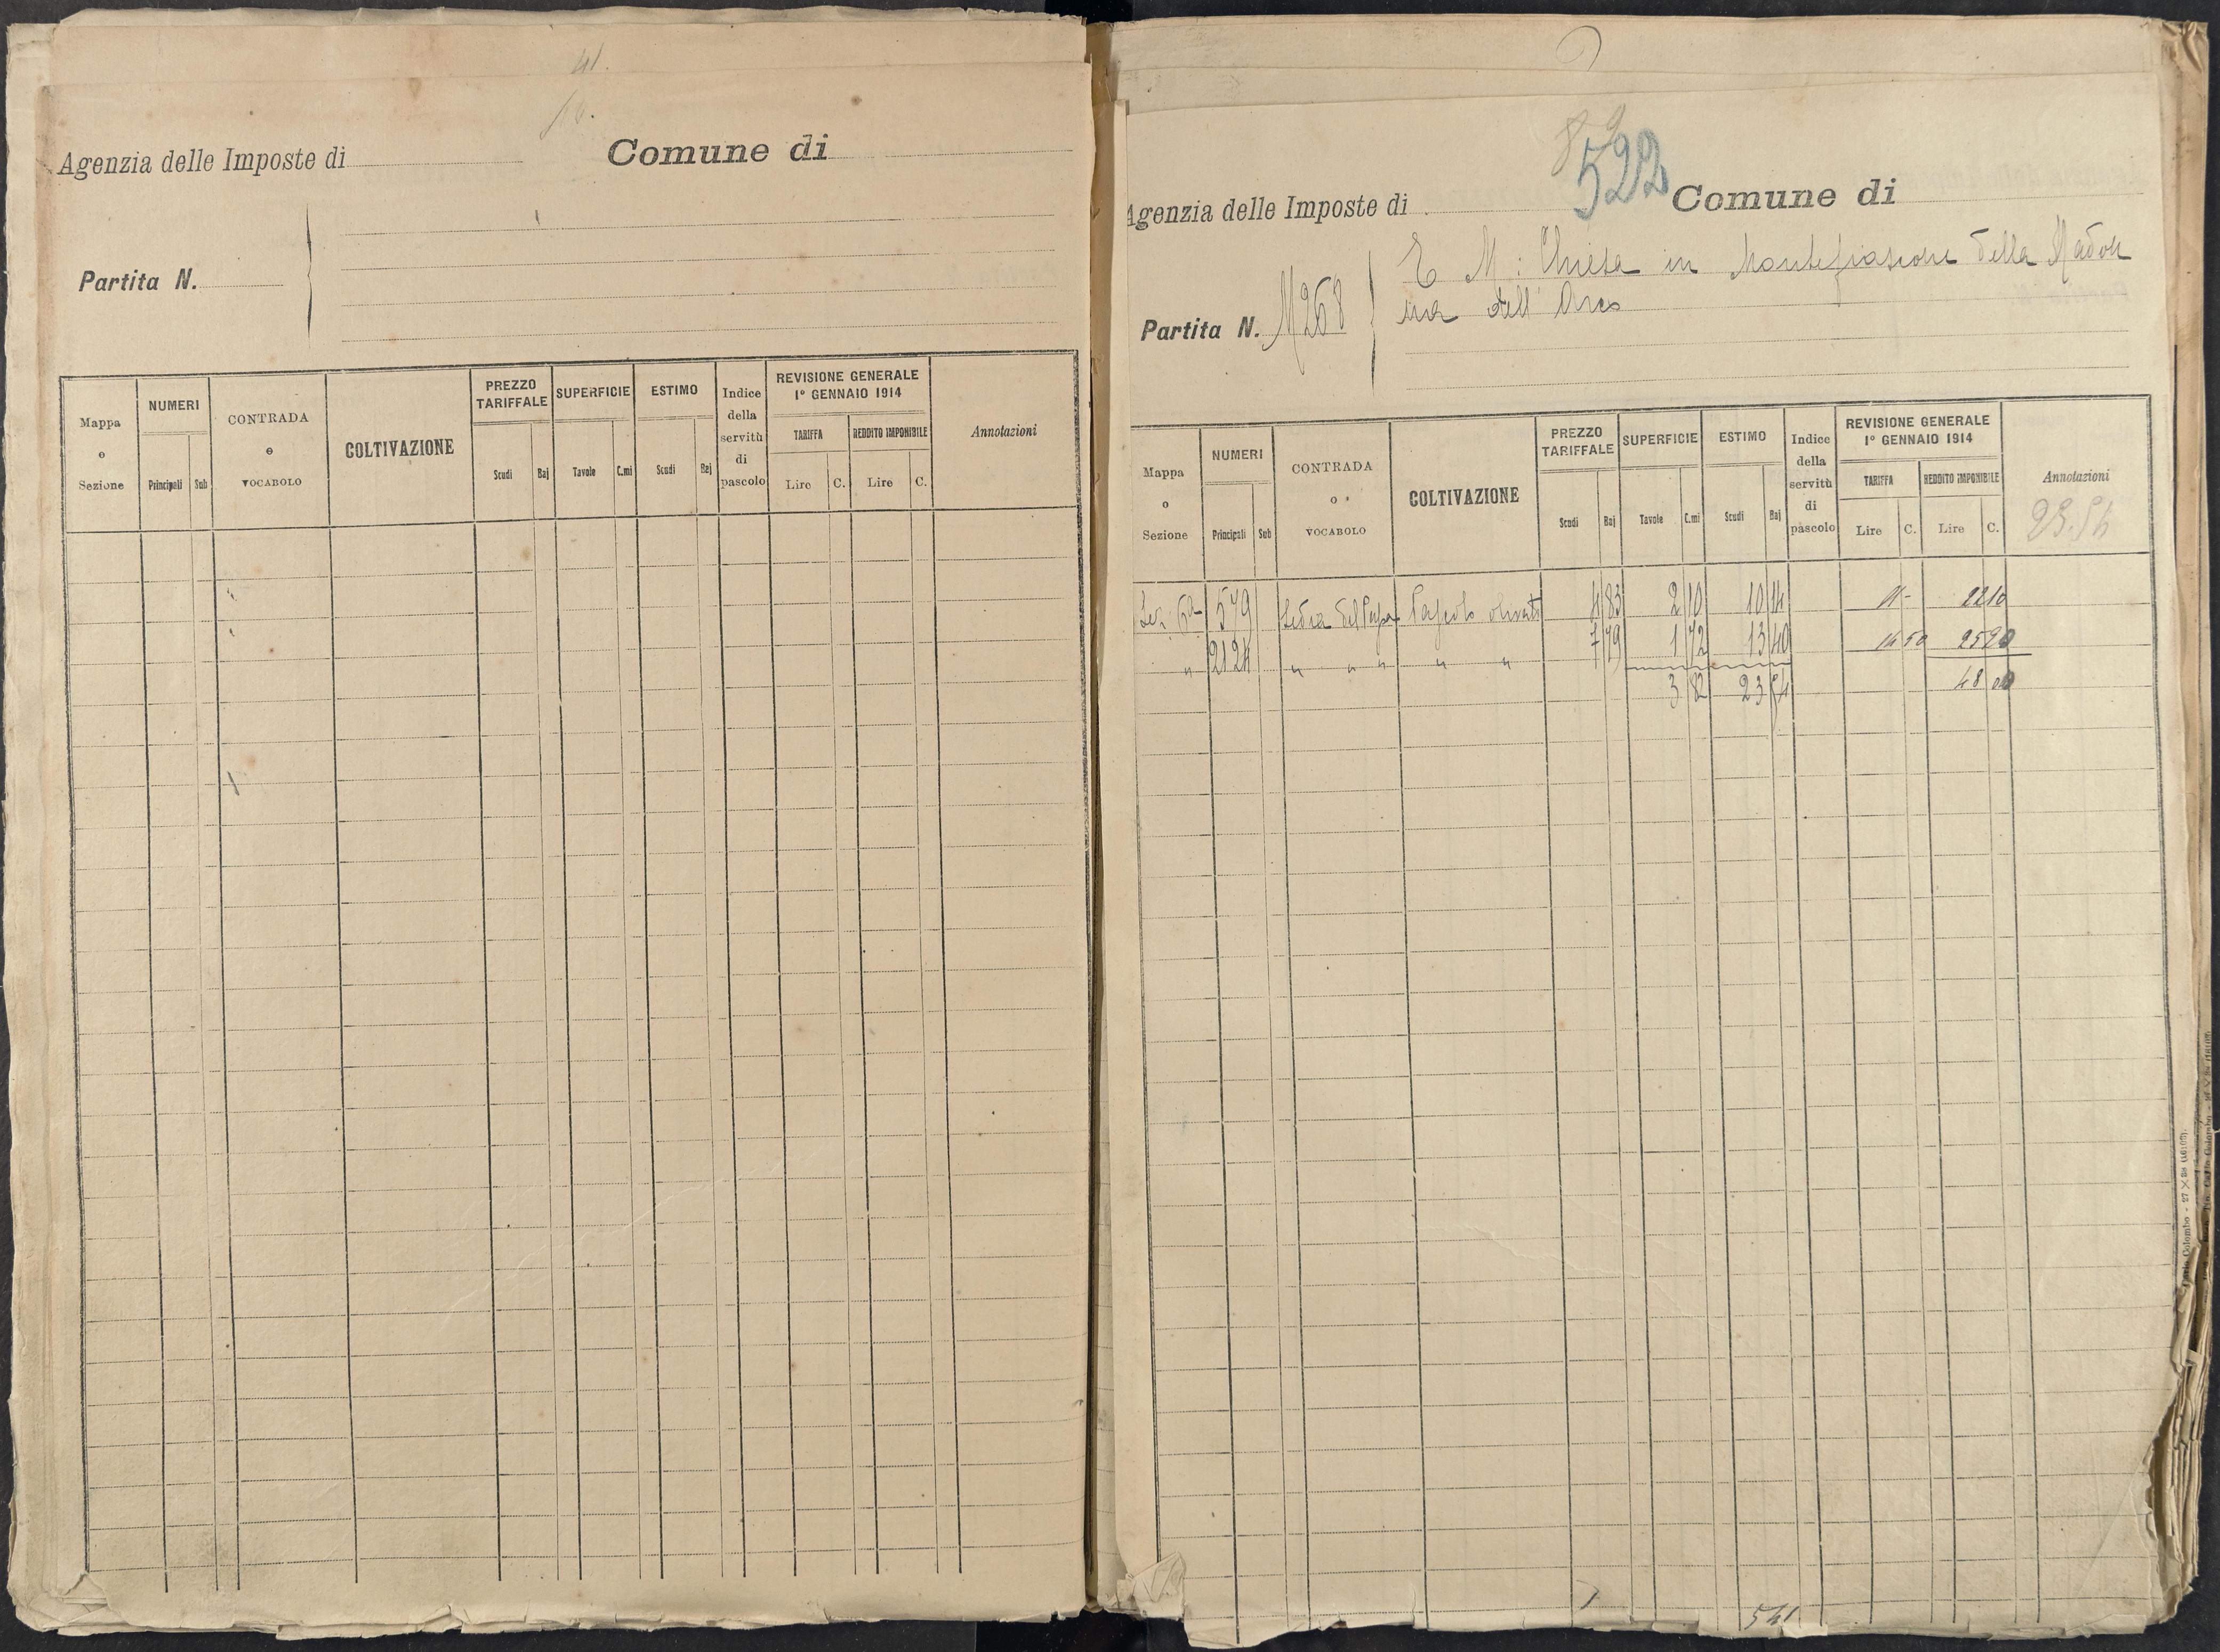 41.
Agenzia delle Imposte di Comune di
Partita N.
Mappa o Sezione NUMERI Principali Sub CONTRADA o VOCABOLO COLTIVAZIONE PREZZO TARIFFALE Scudi Baj SUPERFICIE Tavole C.mi ESTIMO Scudi Baj Indice della servitù di pascolo REVISIONE GENERALE 1° GENNAIO 1914 TARIFFA Lire C. REDDITO IMPONIBILE Lire C. Annotazioni
522
Agenzia delle Imposte di Comune di
E M: Chiesa in Montefiascone della Madon
Partita N. na dell' Arco
Mappa o Sezione NUMERI Principali Sub CONTRADA o VOCABOLO COLTIVAZIONE PREZZO TARIFFALE Scudi Baj SUPERFICIE Tavole C.mi ESTIMO Scudi Baj Indice della servitù di pascolo REVISIONE GENERALE 1° GENNAIO 1914 TARIFFA Lire C. REDDITO IMPONIBILE Lire C. Annotazioni
23.54
Sez. 6a 579 Sedia del Papa Pascolo olivato 4 83 2 10 10 14 11 - 22 10
" 2124 " " " " " 7 79 1 72 13 40 14 50 25 90
3 82 23 54 48 00
541